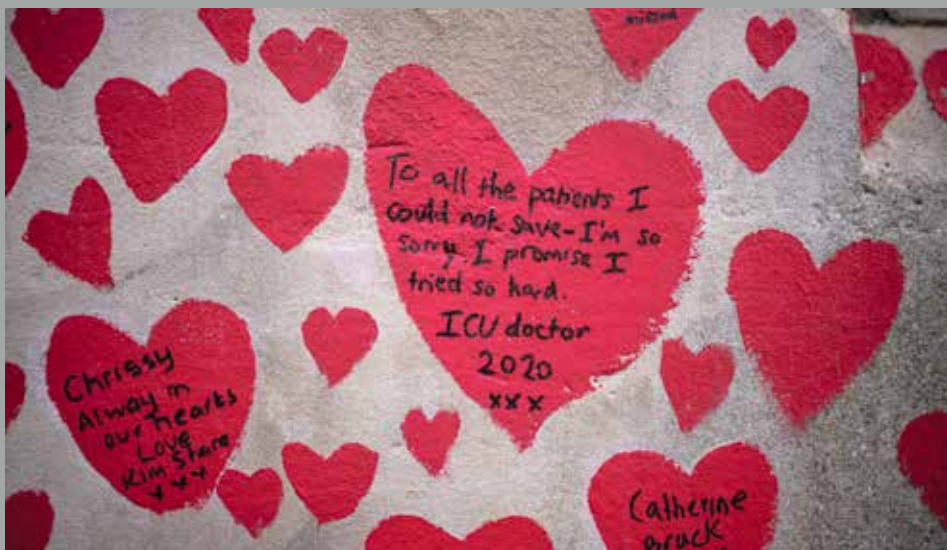 To all the patients I
could not save-I'm so
sorry. I promise I
tried so hard.
ICU doctor
2020
xxx
Chrissy
Alway in
our hearts
Love
Kim
xxx
Catherine